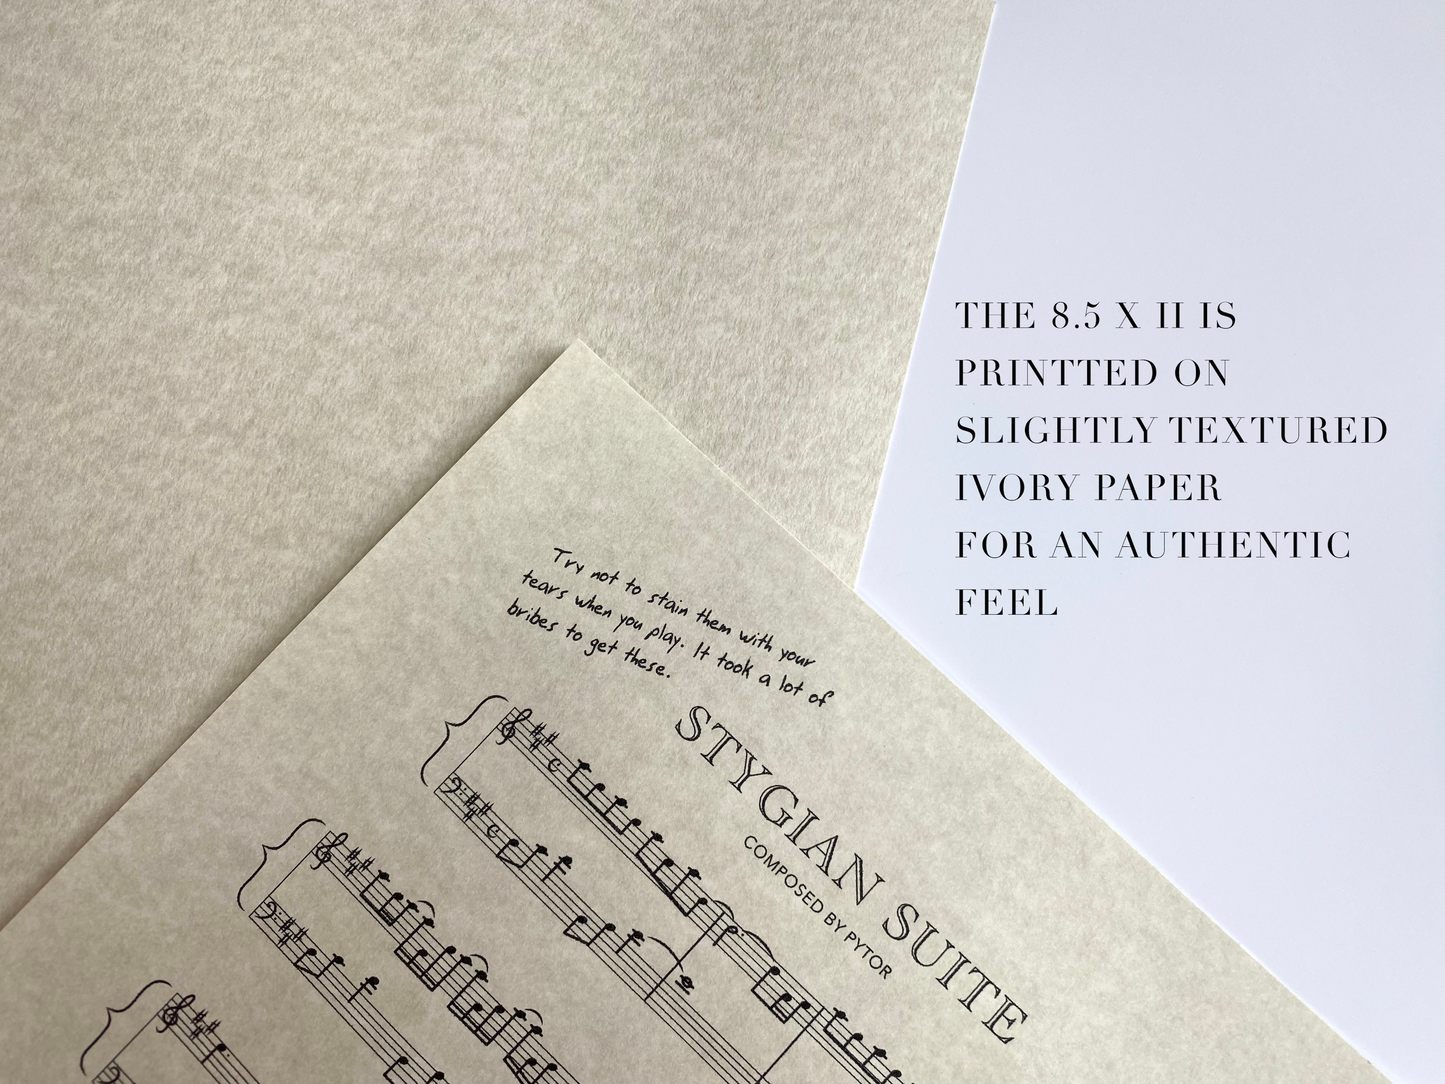 THE 8.5 X 11 IS
PRINTTED ON
SLIGHTLY TEXTURED
IVORY PAPER
FOR AN AUTHENTIC
FEEL
Try not to stain them with your
tears when you play. It took a lot of
bribes to get these.
STYGIAN SUITE
COMPOSED BY PYTOR